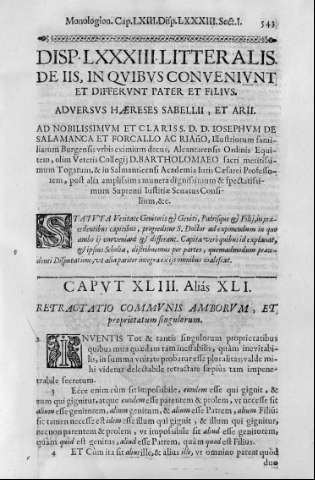 Monologion. Cap. LXIII. Disp. LXXXIII. Sect. I. 543
DISP. LXXXIII. LITTERALIS.
DE IIS, IN QVIBVS CONVENIVNT
ET DIFFERVNT PATER ET FILIVS.
ADVERSVS HÆRESES SABELLII, ET ARII.
AD NOBILISSIMVM ET CLARISS. D. D. IOSEPHVM DE
SALAMANCA ET FORCALLO AC RIAGO, Illustriorum fami-
liarum Burgensis vrbis eximium decus, Alcantarensis Ordinis Equi-
tem, olim Veteris Collegij D. BARTHOLOMAEO sacri meritissi-
mum Togatum, & in Salmanticensi Academia Iuris Cæsarei Professo-
rem, post alia amplissima munera dignissimum & spectatissi-
mum Supremi Iustitiæ Senatus Consi-
lium, &c.
STATVTA Vnitate Gignentis & Geniti, Patrisque & Filij, in præ-
cedentibus capitibus, progreditur S. Doctor ad exponendum in quo
ambo ij conveniant & differant. Capita verò quibus id explanat,
& ipsius Scholia, distribuemus per partes, quemadmodum præce-
denti Disputatione, vt alia pariter integra ex ijs omnibus coalescat.
CAPVT XLIII. Aliás XLI.
RETRACTATIO COMMVNIS AMBORVM, ET
proprietatum singulorum.
INVENTIS Tot & tantis singulorum proprietatibus
quibus mira quædam tam ineffabilis, quàm inevitabi-
lis, in summa vnitate probatur esse pluralitas; valde mi-
hi videtur delectabile retractare sæpius tam impene-
trabile secretum.
3 Ecce enim cùm sit impossibile, eundem esse qui gignit, &
eum qui gignitur, atque eundem esse parentem & prolem, vt necesse sit
alium esse genitorem, alium genitum, & alium esse Patrem, alium Filium:
sic tamen necesse est idem esse illum qui gignit, & illum qui gignitur,
necnon parentem & prolem, vt impossibile sit aliud esse genitorem,
quàm quod est genitus, aliud esse Patrem, quàm quod est Filius.
4 ET Cùm ita sit alius ille, & alius ille, vt omnino pateat quòd
duo